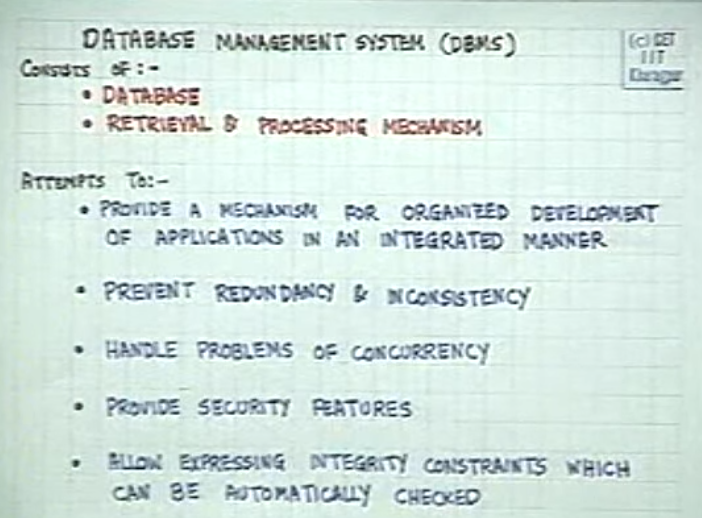 DATABASE MANAGEMENT SYSTEM (DBMS)
(c) CET
IIT
Kharagpur
CONSISTS OF :-
• DATABASE
• RETRIEVAL & PROCESSING MECHANISM
ATTEMPTS TO:-
• PROVIDE A MECHANISM FOR ORGANIZED DEVELOPMENT
OF APPLICATIONS IN AN INTEGRATED MANNER
• PREVENT REDUNDANCY & INCONSISTENCY
• HANDLE PROBLEMS OF CONCURRENCY
• PROVIDE SECURITY FEATURES
• ALLOW EXPRESSING INTEGRITY CONSTRAINTS WHICH
CAN BE AUTOMATICALLY CHECKED